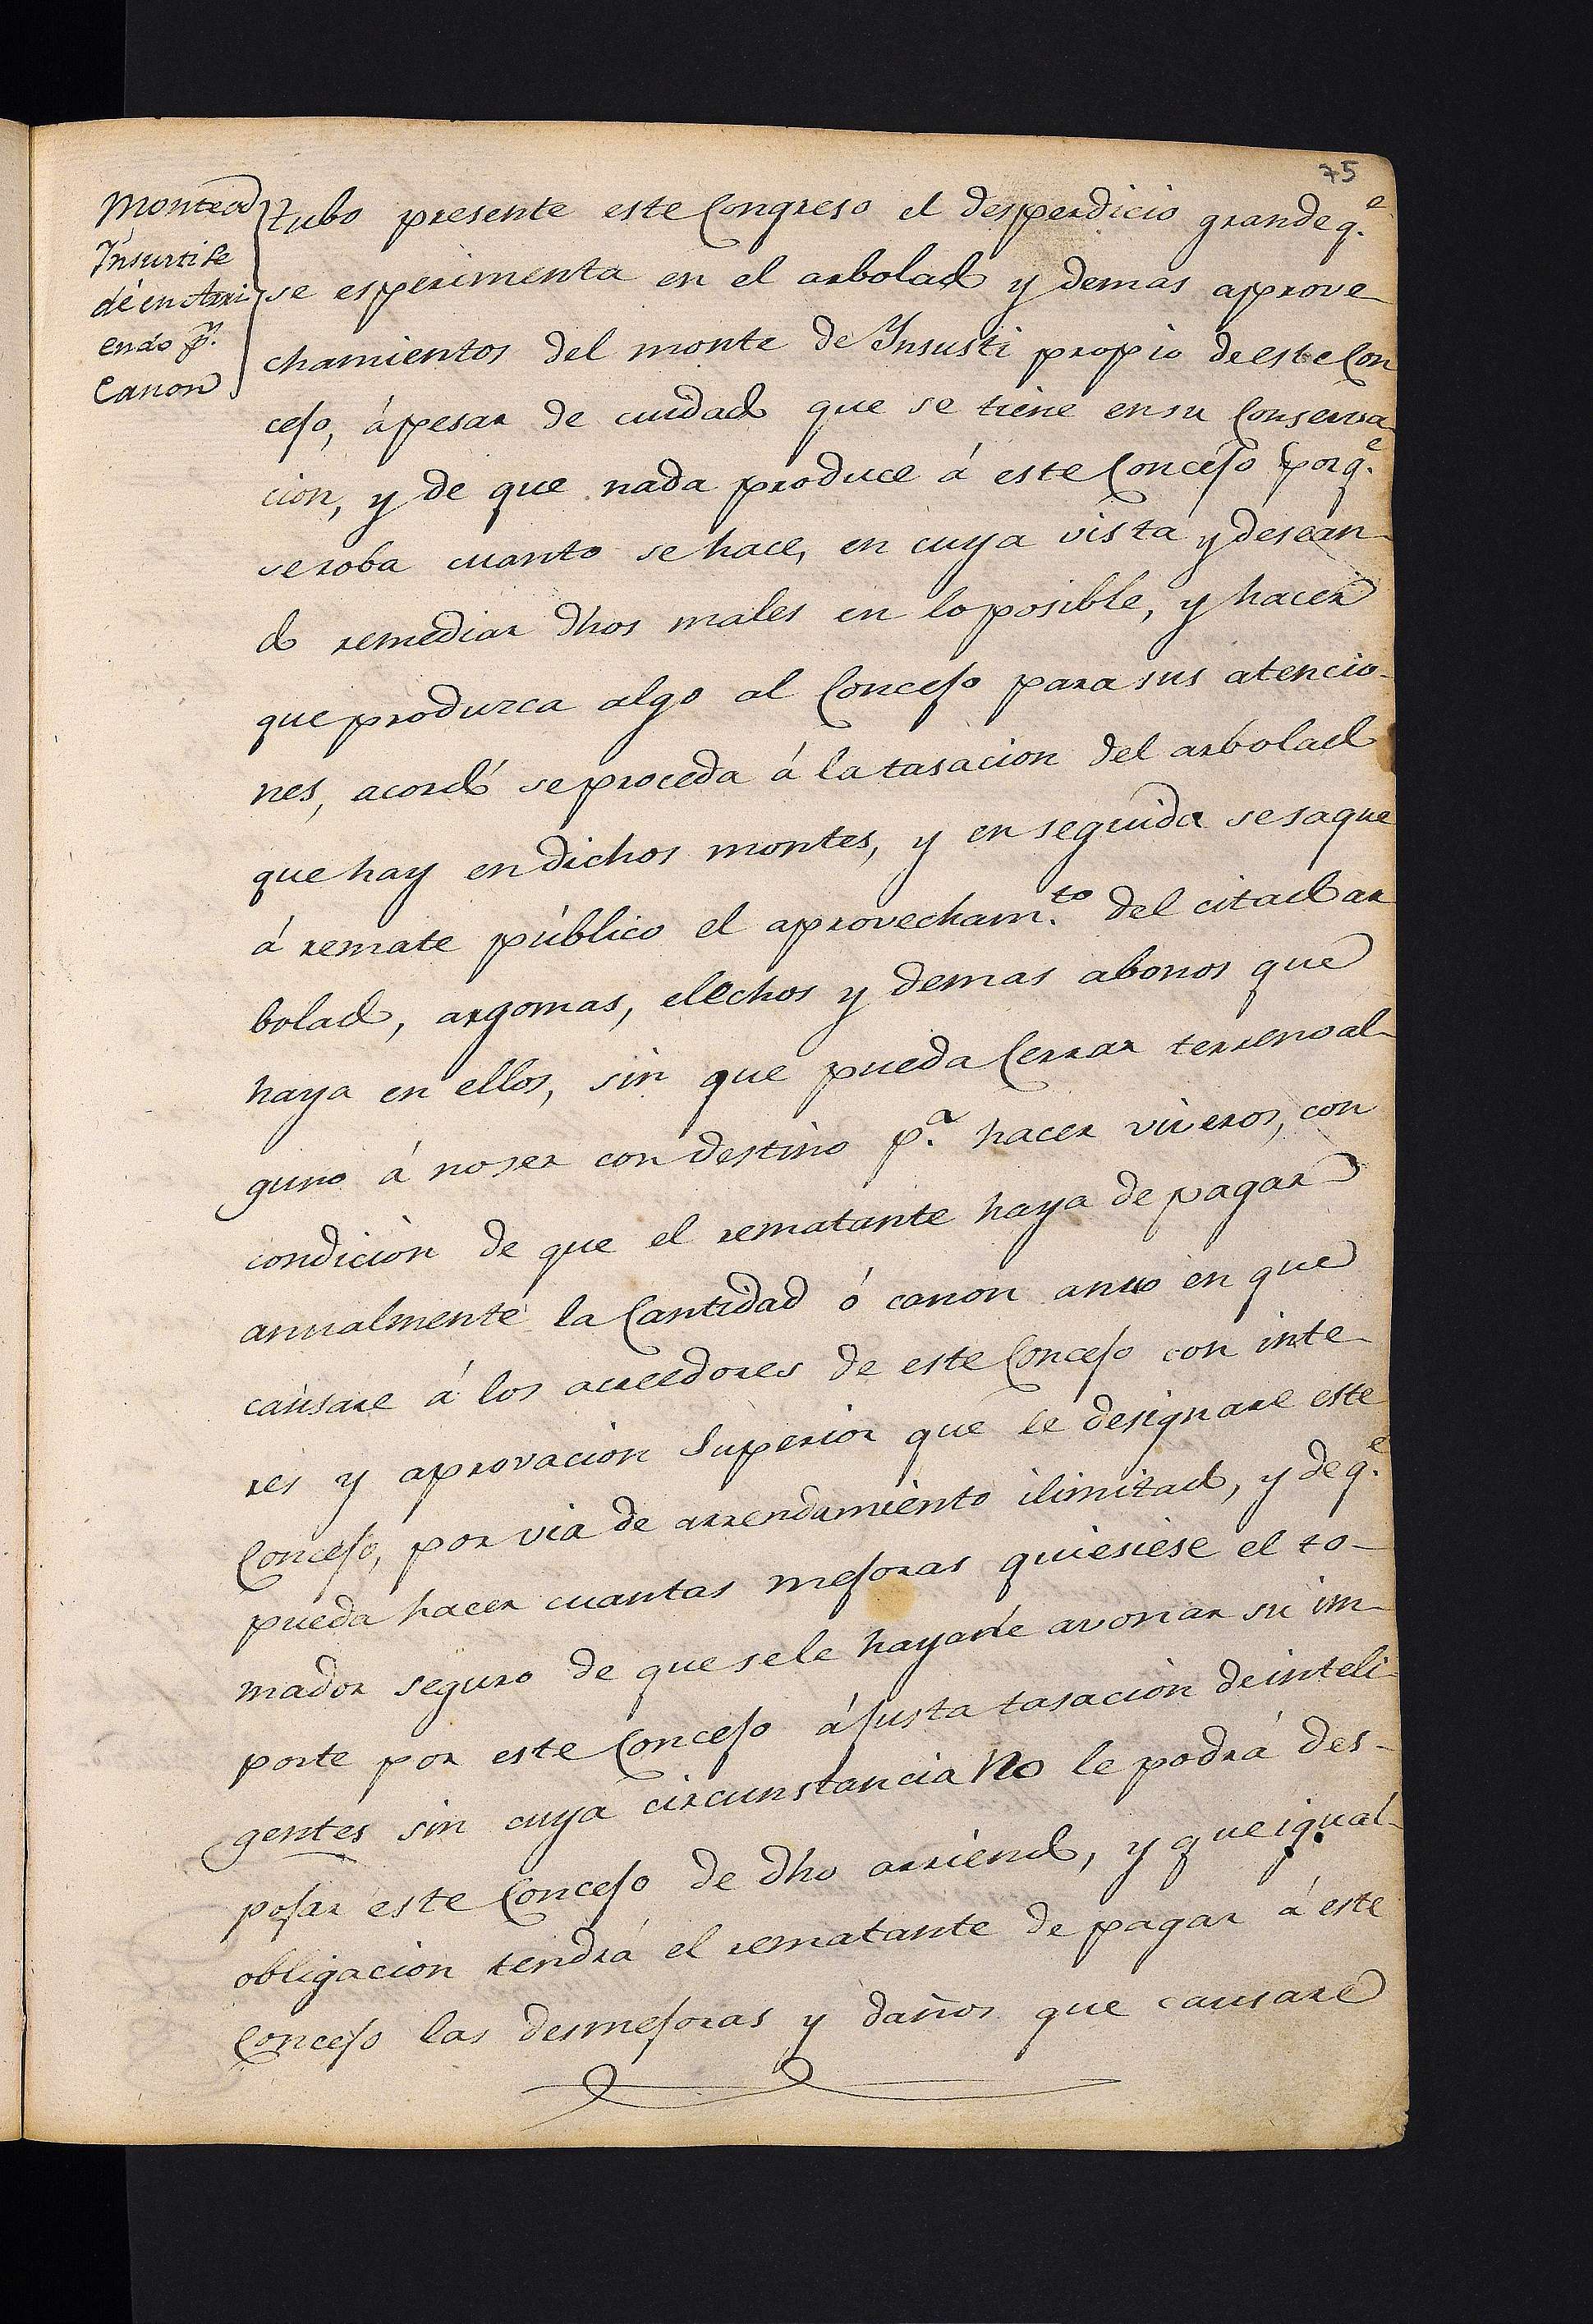 75
Monte de
Insurti se
dé en Arri
endo pr.
Canon
tubo presente este Congreso el desperdicio grande q.e
se esperimenta en el arbolado y demas aprove-
chamientos del monte de Insusti propio de este Con
cejo, á pesar de cuidado que se tiene en su Conserva-
cion, y de que nada produce á este Concejo porq.e
se roba cuanto se hace, en cuya vista y desean-
do remediar dhos males en lo posible, y hacer
que produzca algo al Concejo para sus atencio-
nes, acordó se proceda á la tasacion del arbolado
que hay en dichos montes, y en seguida se saque
á remate público el aprovecham.to del citado ar
bolado, argomas, elechos y demas abonos que
haya en ellos, sin que pueda Cerrar terreno al-
guno á no ser con destino p.a hacer viveros, con
condicion de que el rematante haya de pagar
anualmente la Cantidad ó canon anuo en que
causare á los acreedores de este Concejo con inte-
res y aprovacion Superior que le designare este
Concejo, por via de arrendamiento ilimitado, y de q.e
pueda hacer cuantas mejoras quiesiese el to-
mador seguro de que se le haya de avonar su im-
porte por este Concejo á justa tasacion de inteli-
gentes sin cuya circunstancia No le podrá des-
pojar este Concejo de dho arriendo, y que igual-
obligacion tendrá el rematante de pagar á este
Concejo las desmejoras y daños que causare